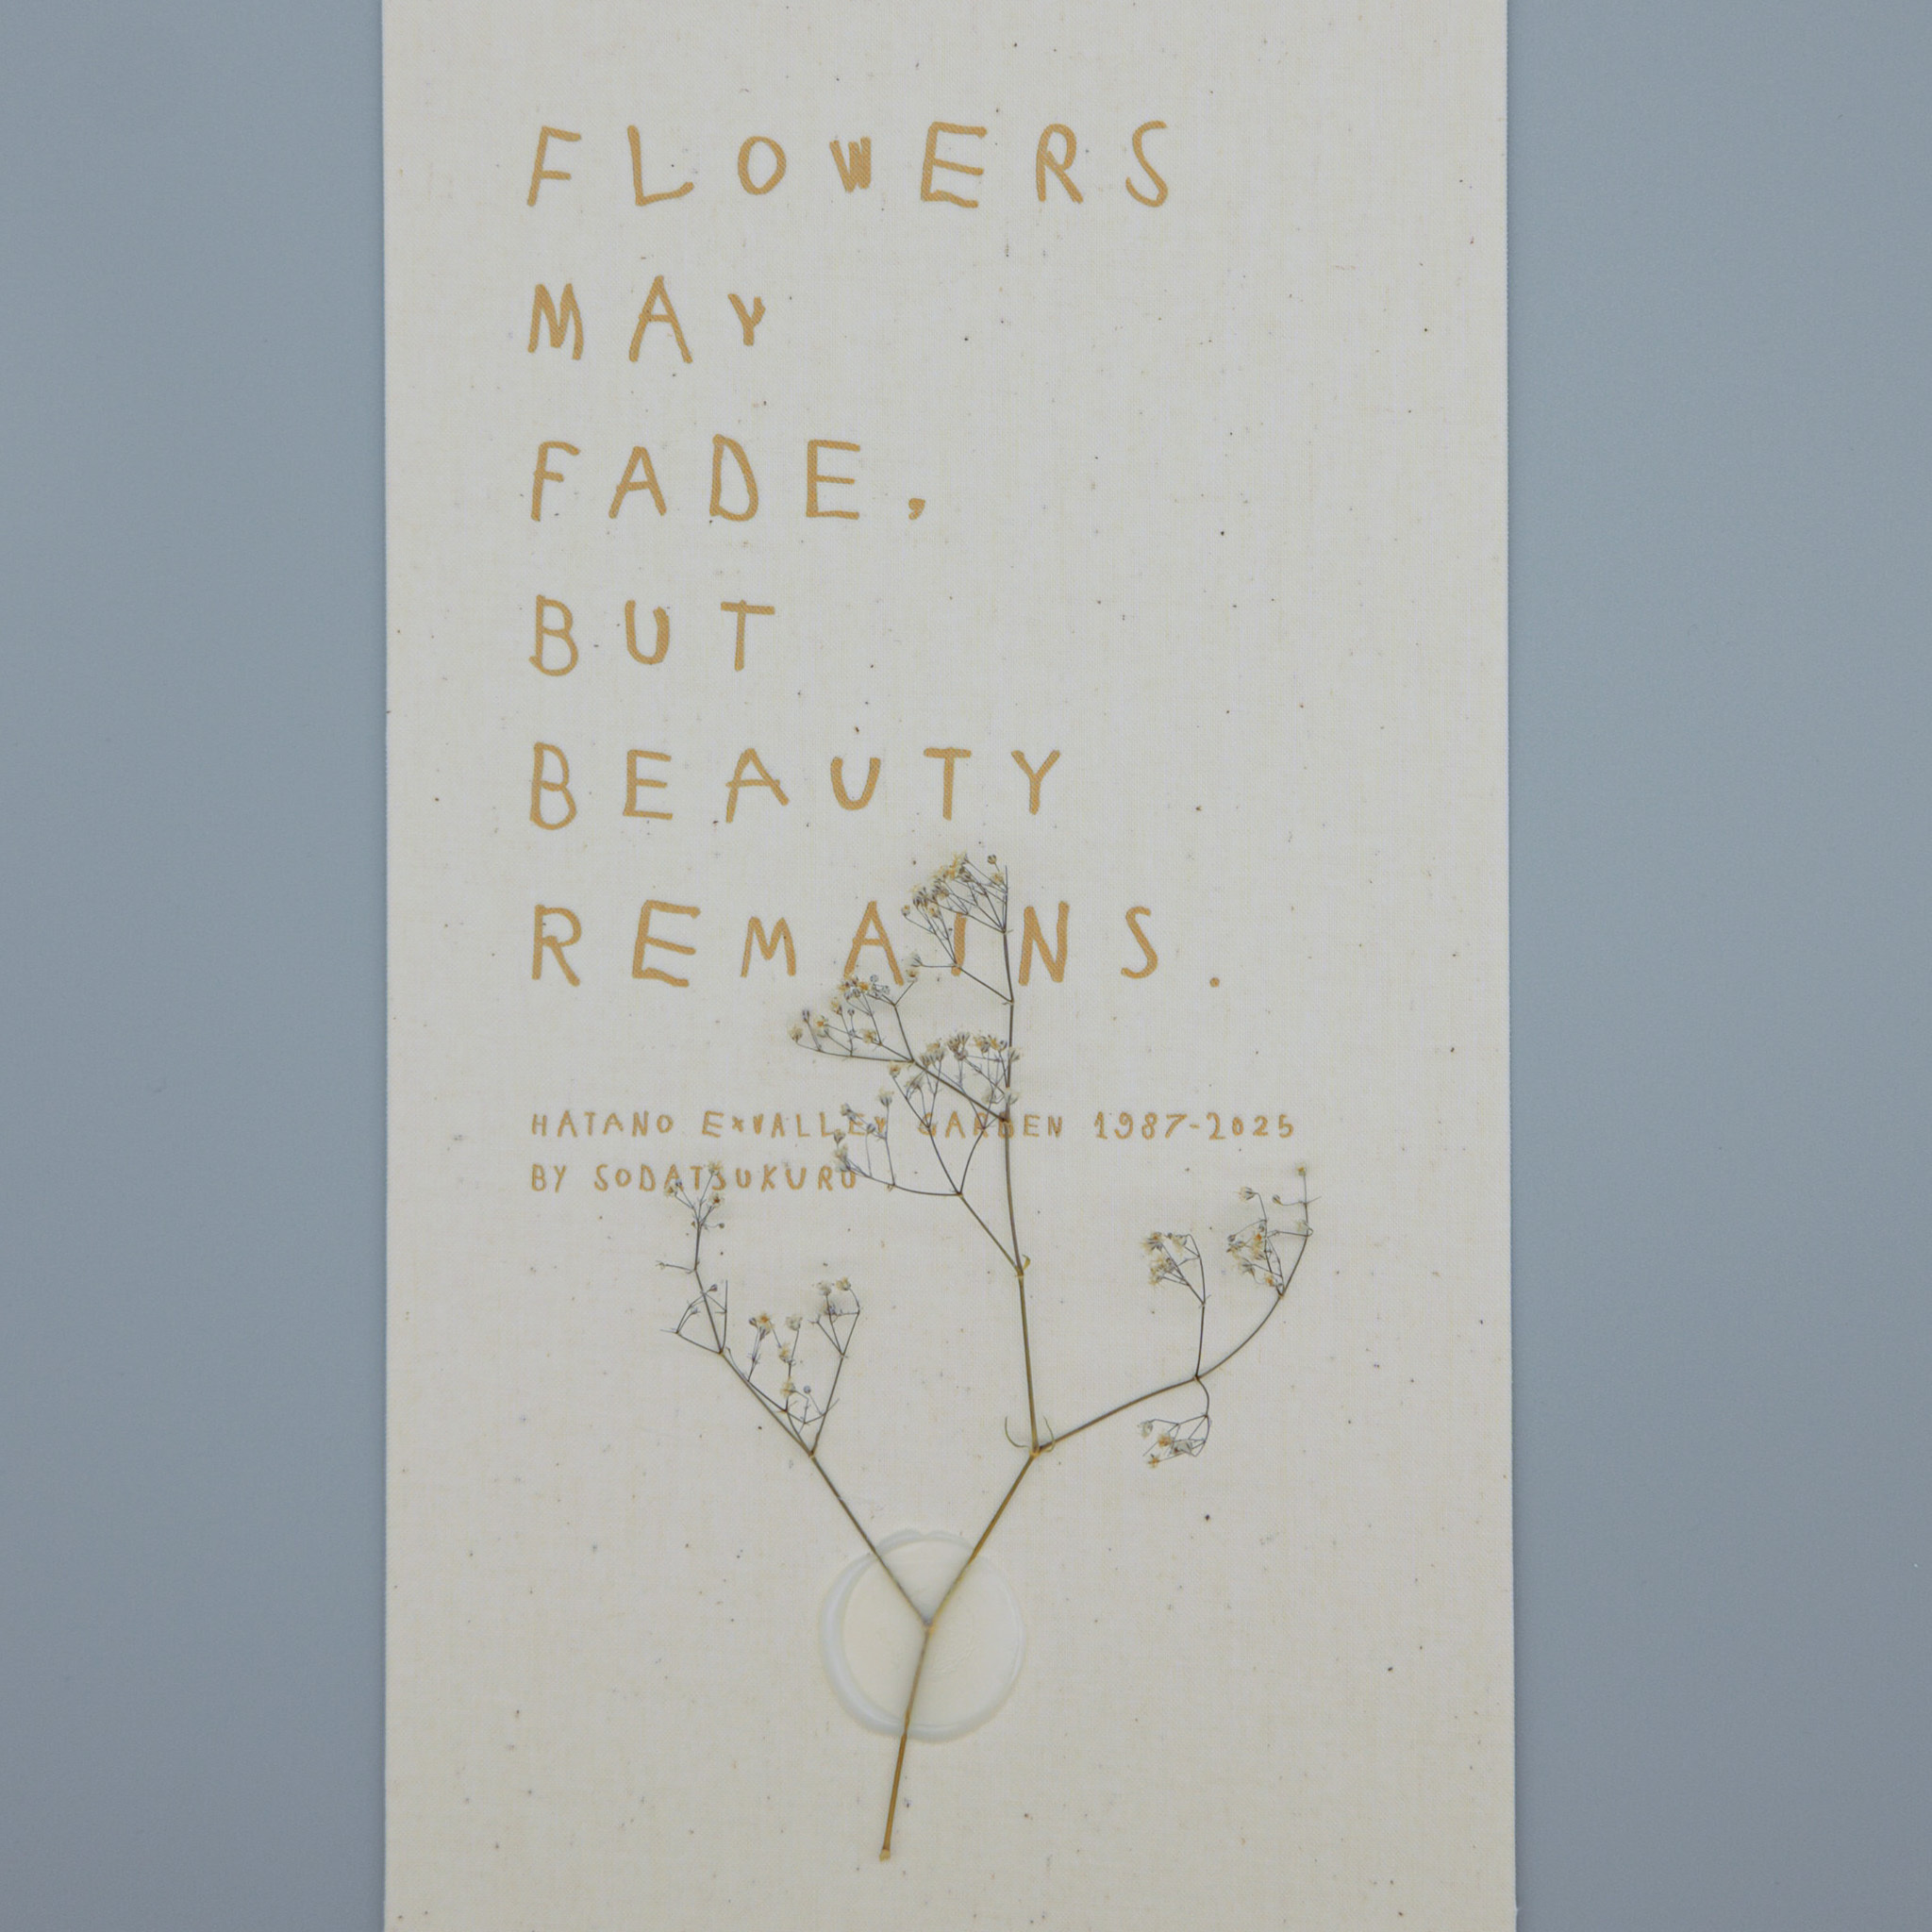 FLOWERS
MAY
FADE,
BUT
BEAUTY
REMAINS.
HATANO ExVALLEY GARDEN 1987-2025
BY SODATSUKURU